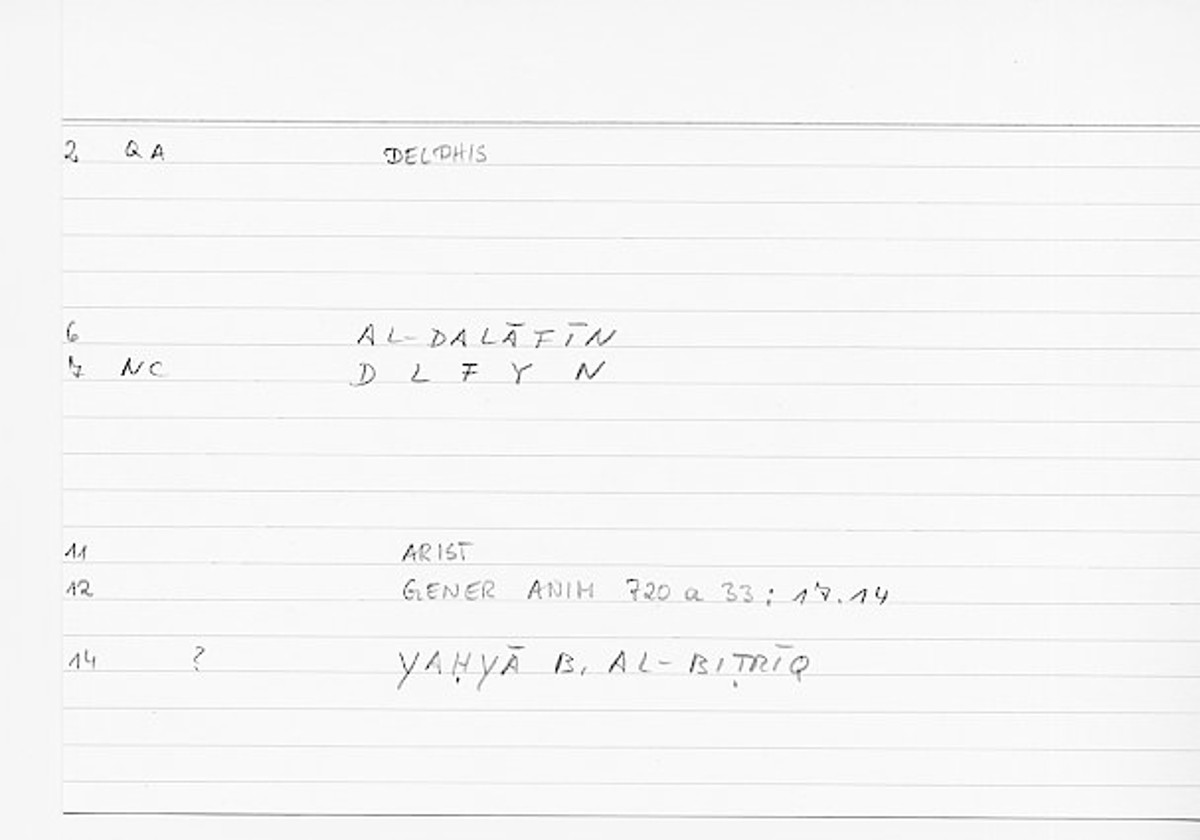 2 QA DELPHIS
6 AL-DALĀFĪN
7 NC D L F Y N
11 ARIST
12 GENER ANIM 720 a 33 ; 17.14
14 ? YAḤYĀ B. AL-BIṬRĪQ